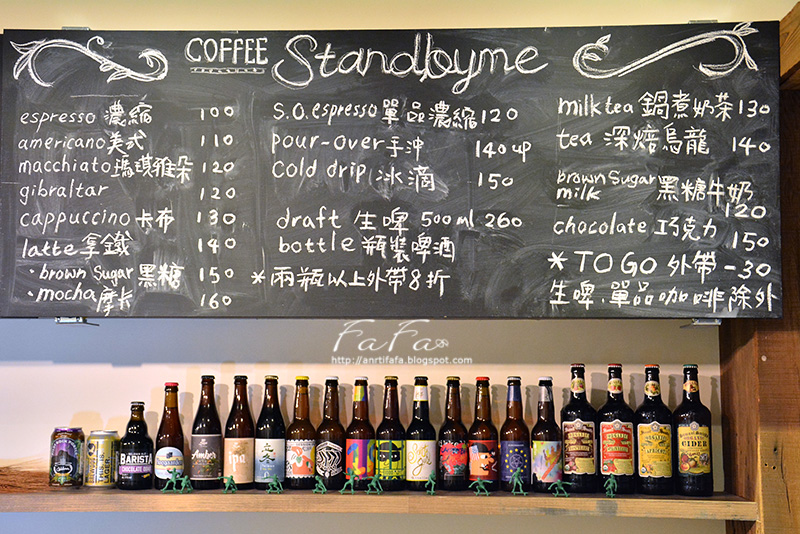 COFFEE Standbyme
espresso 濃縮 100
americano 美式 110
macchiato 瑪琪雅朵 120
gibraltar 120
cappuccino 卡布 130
latte 拿鐵 140
·brown sugar 黑糖 150
·mocha 摩卡 160
s.o. espresso 單品濃縮 120
pour-over 手沖 140 up
cold drip 冰滴 150
draft 生啤 500ml 260
bottle 瓶裝啤酒
*兩瓶以上外帶8折
milk tea 鍋煮奶茶 130
tea 深焙烏龍 140
brown sugar milk 黑糖牛奶 120
chocolate 巧克力 150
*TO GO 外帶 -30
生啤.單品咖啡除外
FaFa
http://anrtifafa.blogspot.com
BARISTA
CHOCOLATE
Amber
ipa
CIDER